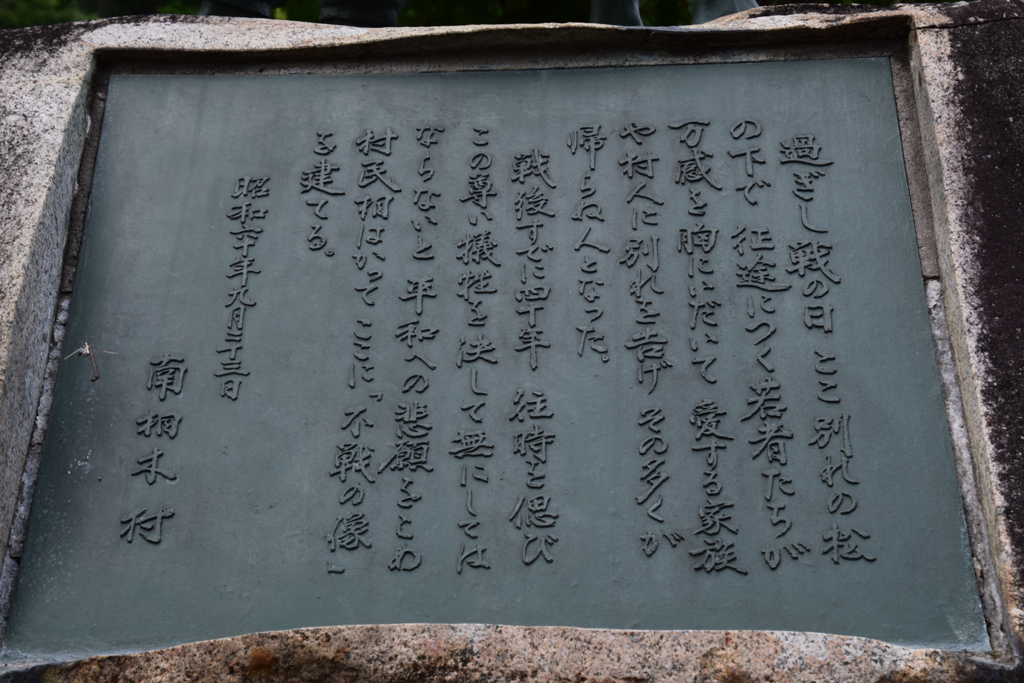 過ぎし戦の日 ここ別れの松
の下で 征途につく若者たちが
万感を胸にいだいて 愛する家族
や村人に別れを告げ その多くが
帰らね人となった。
戦後すでに四十年 往時を偲び
この尊い犠牲を決して無にしては
ならないと 平和への悲願をこめ
村民相はかって ここに「不戦の像」
を建てる。
昭和六十年九月二十三日
南相木村